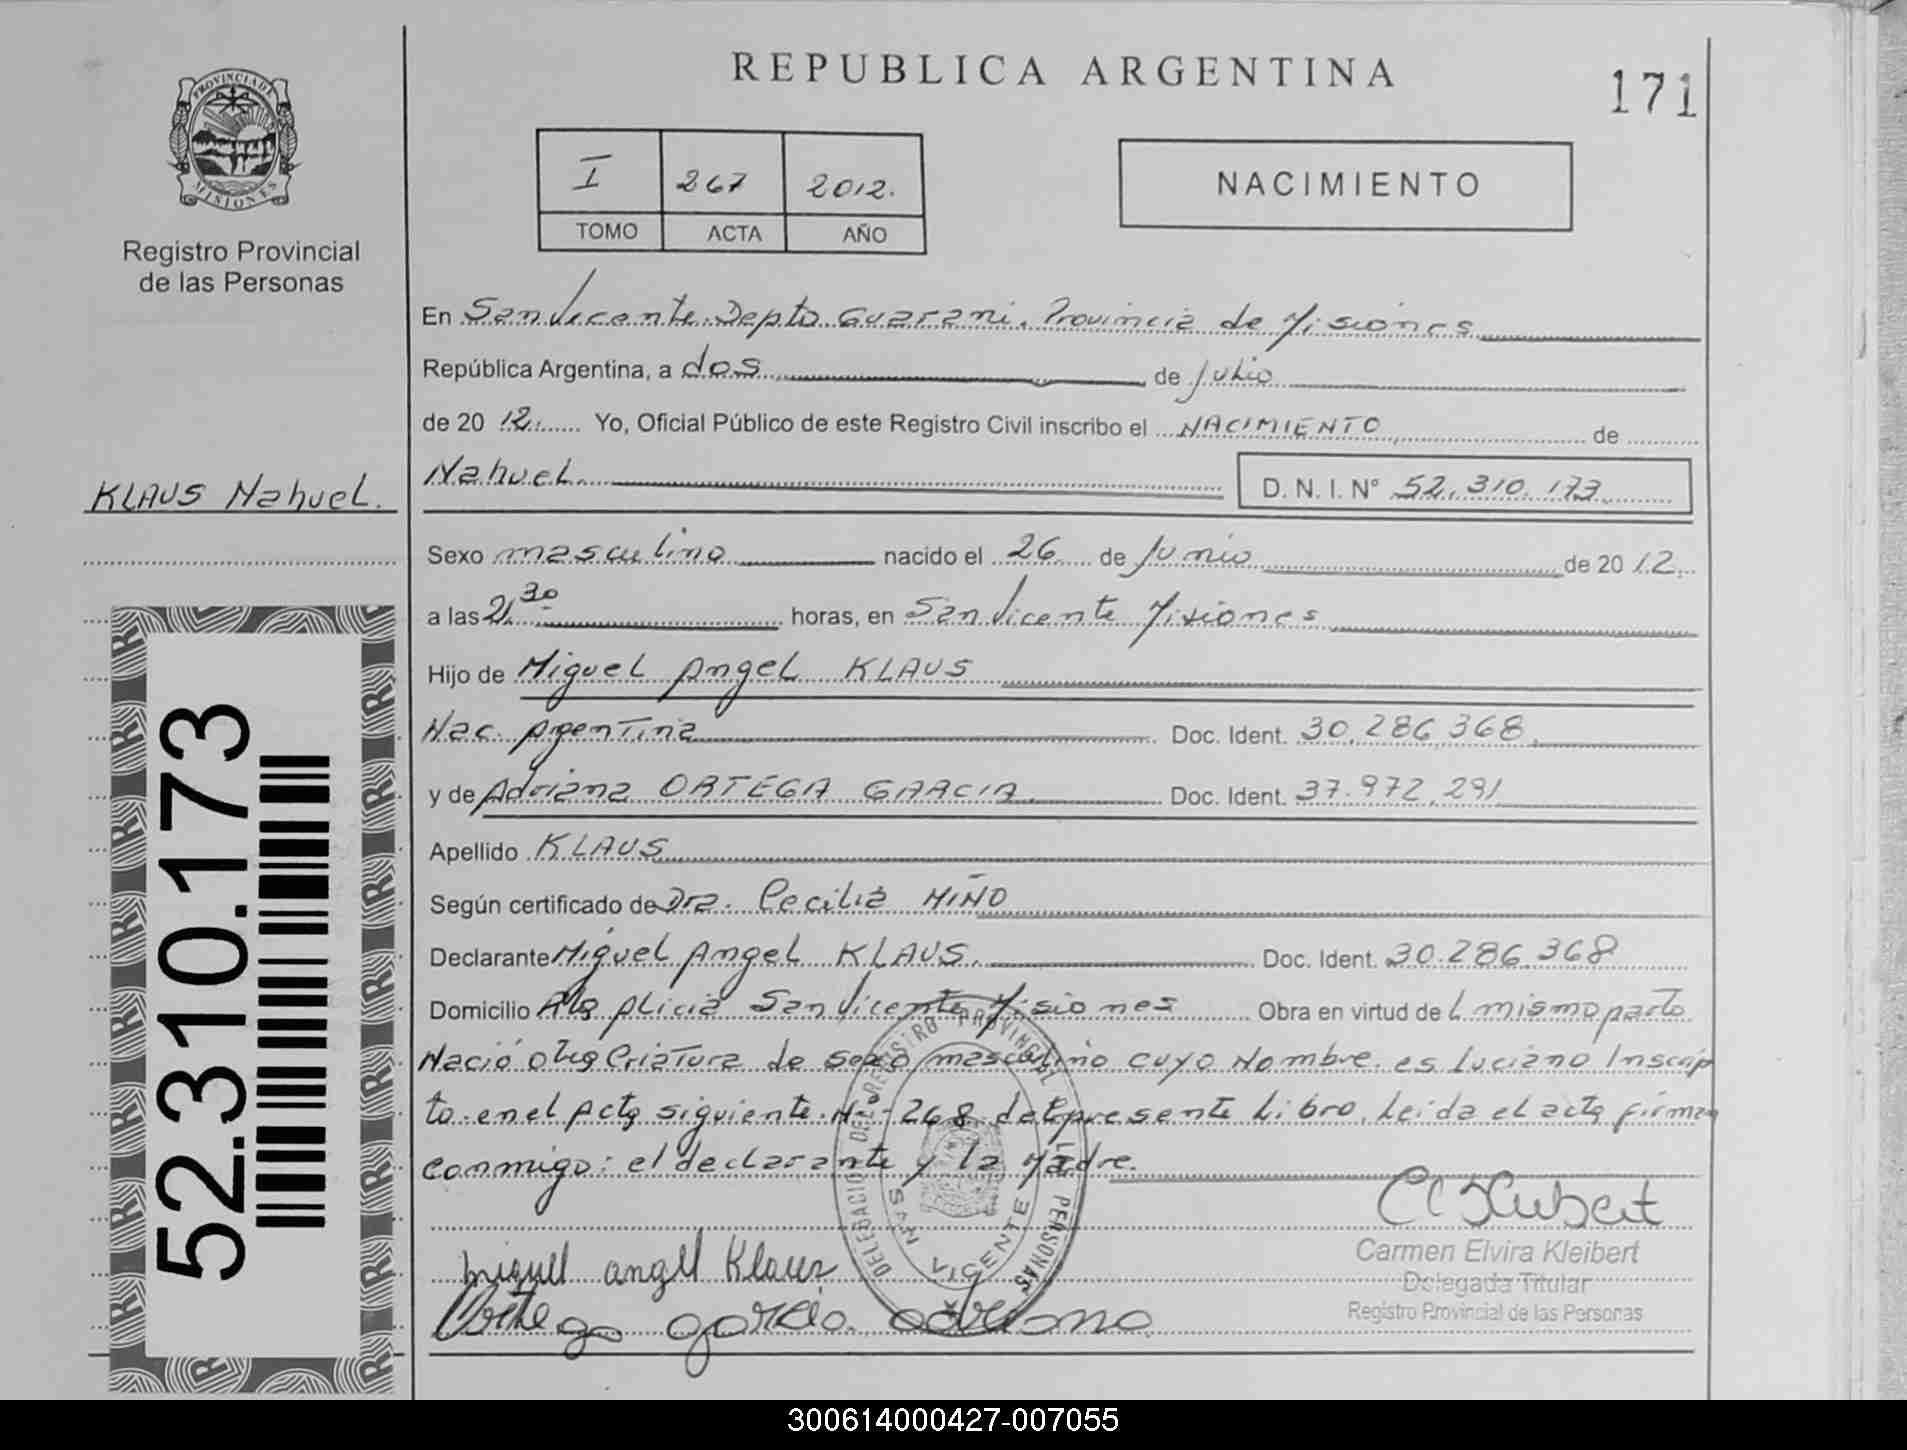 REPUBLICA ARGENTINA
171
PROVINCIA DE
MISIONES
Registro Provincial
de las Personas
I 267 2012.
TOMO ACTA AÑO
NACIMIENTO
En San Vicente Depto Guarani. Provincia de Misiones
República Argentina, a dos de Julio
de 20 12 Yo, Oficial Público de este Registro Civil inscribo el NACIMIENTO de
KLAUS Nahuel.
Nahuel. D. N. I. N° 52.310.173
Sexo masculino nacido el 26 de Junio de 20 12.
a las 21.30 horas, en San Vicente Misiones
Hijo de Miguel Angel KLAUS
Nac. Argentina Doc. Ident. 30.286.368.
y de Adriana ORTEGA GARCIA Doc. Ident. 37.972.291
Apellido KLAUS
Según certificado de Dra. Cecilia MIÑO
Declarante Miguel Angel KLAUS. Doc. Ident. 30.286.368
Domicilio Alicia San Vicente Misiones Obra en virtud de L mismo parto
Nació otra Criatura de sexo masculino cuyo Nombre es Luciano Inscrip
to en el Acta siguiente N° 268 del presente Libro, Leida el acta firman
conmigo: el declarante y la Madre.
52.310.173
DELEGACIÓN DEL REGISTRO PROVINCIAL DE LAS PERSONAS
SAN VICENTE
Miguel angel Klaus
Ortega garcia adriana
Carmen Elvira Kleibert
Delegada Titular
Registro Provincial de las Personas
300614000427-007055